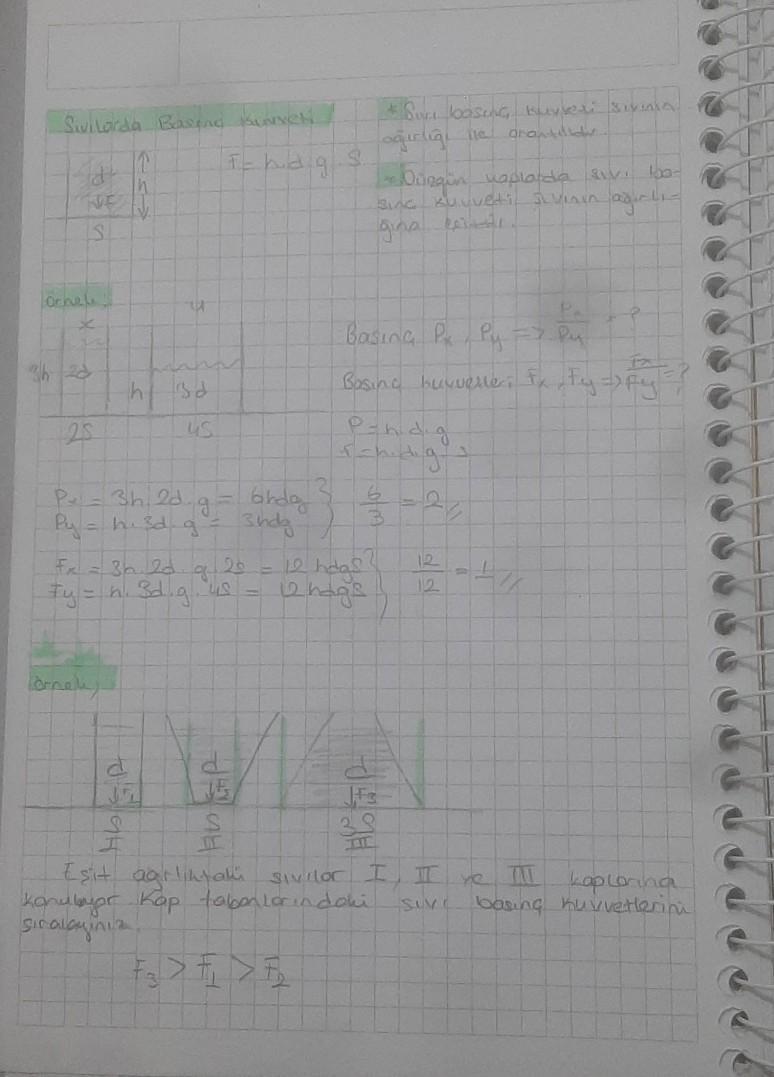 Sıvılarda Basınç Kuvveti
* Sıvı basınç kuvveti sıvının
ağırlığı ile orantılıdır.
F = h.d.g.S
d
h
↓F
S
* Düzgün kaplarda sıvı ba-
sınç kuvveti sıvının ağırlı-
ğına eşittir.
Örnek,
x
y
3h
2d
h
3d
2S
4S
Basınç Px, Py => Px/Py = ?
Basınç kuvvetleri Fx, Fy => Fx/Fy = ?
P = h.d.g
F = h.d.g.s
Px = 3h.2d.g = 6hdg
Py = h.3d.g = 3hdg
6/3 = 2
Fx = 3h.2d.g.2S = 12hdgS
Fy = h.3d.g.4S = 12hdgS
12/12 = 1
Örnek,
d d d
↓F1 ↓F2 ↓F3
S S 3S
I II III
Eşit ağırlıktaki sıvılar I, II ve III kaplarına
konuluyor Kap tabanlarındaki sıvı basınç kuvvetlerini
sıralayınız.
F3 > F1 > F2